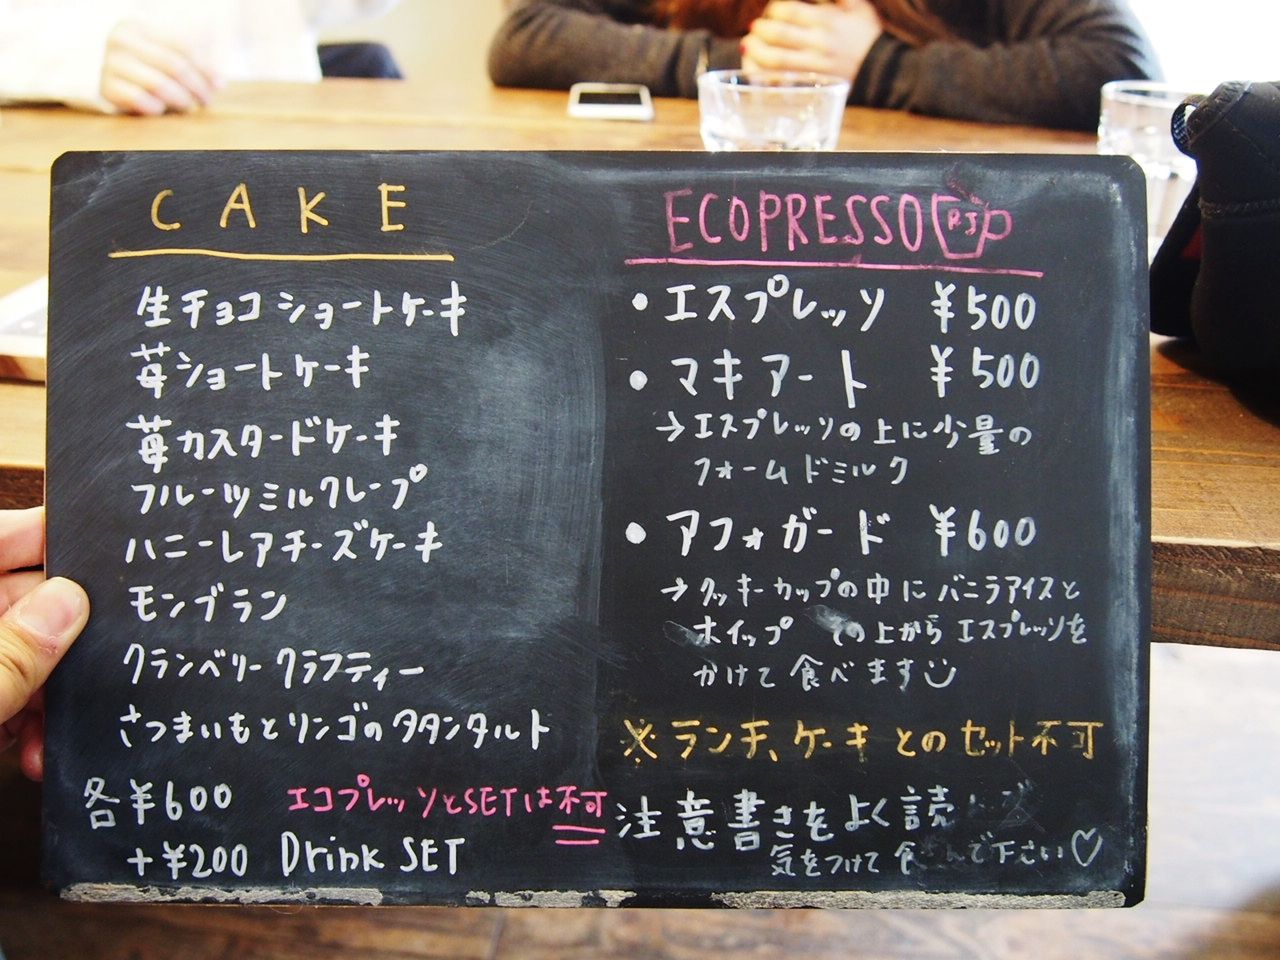 CAKE
生チョコショートケーキ
苺ショートケーキ
苺カスタードケーキ
フルーツミルクレープ
ハニーレアチーズケーキ
モンブラン
クランベリークラフティー
さつまいもとリンゴのタタンタルト
各¥600 エコプレッソとSETは不可
+¥200 Drink SET
ECOPRESSO RJ
・エスプレッソ ¥500
・マキアート ¥500
→エスプレッソの上に少量の
フォームドミルク
・アフォガード ¥600
→クッキーカップの中にバニラアイスと
ホイップ その上からエスプレッソを
かけて食べます
※ランチ、ケーキとのセット不可
注意書きをよく読
気をつけて食 んで下さい♡